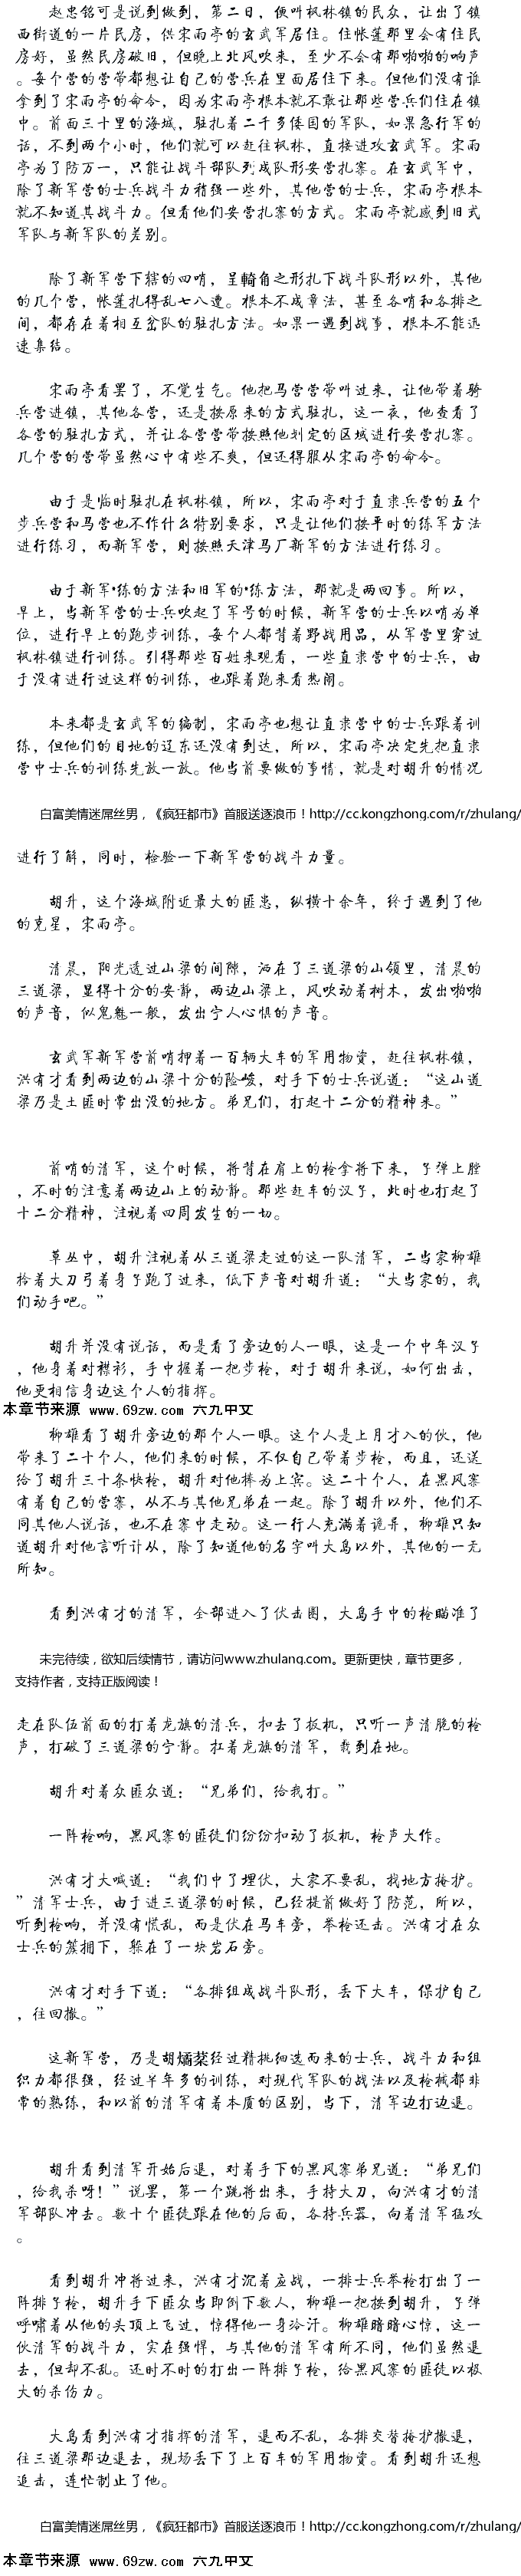 赵忠铭可是说到做到，第二日，便听枫林镇的民众，让出了镇
西街道的一片民房，供宋雨亭的玄武军居住。住帐莲那里会有住民
房好，虽然民房破旧，但晚上北风吹来，至少不会有那啪啪的响声
。每个营的营带都想让自己的营兵在里面居住下来。但他们没有谁
拿到了宋雨亭的命令，因为宋雨亭根本就不敢让那些营兵们住在镇
中。前面三十里的海城，驻扎着二千多倭国的军队，如果急行军的
话，不到两个小时，他们就可以赶往枫林，直接进攻玄武军。宋雨
亭为了防万一，只能让战斗部队列成队形安营扎寨。在玄武军中，
除了新军营的士兵战斗力稍强一些外，其他营的士兵，宋雨亭根本
就不知道其战斗力。但看他们安营扎寨的方式。宋雨亭就感到旧式
军队与新军队的差别。
除了新军营下辖的四哨，呈輢角之形扎下战斗队形以外，其他
的几个营，帐莲扎得乱七八遭。根本不成章法，甚至各哨和各排之
间，都存在着相互岔队的驻扎方法。如果一遇到战事，根本不能迅
速集结。
宋雨亭看罢了，不觉生气。他把马营营带叫过来，让他带着骑
兵营进镇，其他各营，还是按原来的方式驻扎，这一夜，他查看了
各营的驻扎方式，并让各营营带按照他划定的区域进行安营扎寨。
几个营的营带虽然心中有些不爽，但还得服从宋雨亭的命令。
由于是临时驻扎在枫林镇，所以，宋雨亭对于直隶兵营的五个
步兵营和马营也不作什么特别要求，只是让他们按平时的练军方法
进行练习，而新军营，则按照天津马厂新军的方法进行练习。
由于新军•练的方法和旧军的•练方法，那就是两回事。所以，
早上，当新军营的士兵吹起了军号的时候，新军营的士兵以哨为单
位，进行早上的跑步训练，每个人都背着野战用品，从军营里穿过
枫林镇进行训练。引得那些百姓来观看，一些直隶营中的士兵，由
于没有进行过这样的训练，也跟着跑来看热闹。
本来都是玄武军的编制，宋雨亭也想让直隶营中的士兵跟着训
练，但他们的目地的辽东还没有到达，所以，宋雨亭决定先把直隶
营中士兵的训练先放一放。他当前要做的事情，就是对胡升的情况
白富美情迷屌丝男，《疯狂都市》首服送逐浪币！http://cc.kongzhong.com/r/zhulang/
进行了解，同时，检验一下新军营的战斗力量。
胡升，这个海城附近最大的匪患，纵横十余年，终于遇到了他
的克星，宋雨亭。
清晨，阳光透过山梁的间隙，洒在了三道梁的山领里，清晨的
三道梁，显得十分的安静，两边山梁上，风吹动着树木，发出啪啪
的声音，似鬼魅一般，发出宁人心惧的声音。
玄武军新军营前哨押着一百辆大车的军用物资，赶往枫林镇，
洪有才看到两边的山梁十分的险峻，对手下的士兵说道：“这山道
梁乃是土匪时常出没的地方。弟兄们，打起十二分的精神来。”
前哨的清军，这个时候，将背在肩上的枪拿将下来，子弹上膛
，不时的注意着两边山上的动静。那些赶车的汉子，此时也打起了
十二分精神，注视着四周发生的一切。
草丛中，胡升注视着从三道梁走过的这一队清军，二当家柳雄
拎着大刀弓着身子跑了过来，低下声音对胡升道：“大当家的，我
们动手吧。”
胡升并没有说话，而是看了旁边的人一眼，这是一个中年汉子
，他身着对襟衫，手中握着一把步枪，对于胡升来说，如何出击，
他更相信身边这个人的指挥。
本章节来源 www.69zw.com 六九中文
柳雄看了胡升旁边的那个人一眼。这个人是上月才入的伙，他
带来了二十个人，他们来的时候，不仅自己带着步枪，而且，还送
给了胡升三十条快枪，胡升对他捧为上宾。这二十个人，在黑风寨
有着自己的营寨，从不与其他兄弟在一起。除了胡升以外，他们不
同其他人说话，也不在寨中走动。这一行人充满着诡异，柳雄只知
道胡升对他言听计从，除了知道他的名字叫大岛以外，其他的一无
所知。
看到洪有才的清军，全部进入了伏击圈，大岛手中的枪瞄准了
未完待续，欲知后续情节，请访问www.zhulang.com。更新更快，章节更多，
支持作者，支持正版阅读！
走在队伍前面的打着龙旗的清兵，扣去了板机，只听一声清脆的枪
声，打破了三道梁的宁静。扛着龙旗的清军，载到在地。
胡升对着众匪众道：“兄弟们，给我打。”
一阵枪响，黑风寨的匪徒们纷纷扣动了板机，枪声大作。
洪有才大喊道：“我们中了埋伏，大家不要乱，找地方掩护。
”清军士兵，由于进三道梁的时候，已经提前做好了防范，所以，
听到枪响，并没有慌乱，而是伏在马车旁，举枪还击。洪有才在众
士兵的簇拥下，躲在了一块岩石旁。
洪有才对手下道：“各排组成战斗队形，丢下大车，保护自己
，往回撤。”
这新军营，乃是胡燏棻经过精挑细选而来的士兵，战斗力和组
织力都很强，经过半年多的训练，对现代军队的战法以及枪械都非
常的熟练，和以前的清军有着本质的区别，当下，清军边打边退。
胡升看到清军开始后退，对着手下的黑风寨弟兄道：“弟兄们
，给我杀呀！”说罢，第一个跳将出来，手持大刀，向洪有才的清
军部队冲去。数十个匪徒跟在他的后面，各持兵器，向着清军猛攻
。
看到胡升冲将过来，洪有才沉着应战，一排士兵举枪打出了一
阵排子枪，胡升手下匪众当即倒下数人，柳雄一把按到胡升，子弹
呼啸着从他的头顶上飞过，惊得他一身冷汗。柳雄暗暗心惊，这一
伙清军的战斗力，实在强悍，与其他的清军有所不同，他们虽然退
去，但却不乱。还时不时的打出一阵排子枪，给黑风寨的匪徒以极
大的杀伤力。
大岛看到洪有才指挥的清军，退而不乱，各排交替掩护撤退，
往三道梁那边退去，现场丢下了上百车的军用物资。看到胡升还想
追击，连忙制止了他。
白富美情迷屌丝男，《疯狂都市》首服送逐浪币！http://cc.kongzhong.com/r/zhulang/
本章节来源 www.69zw.com 六九中文